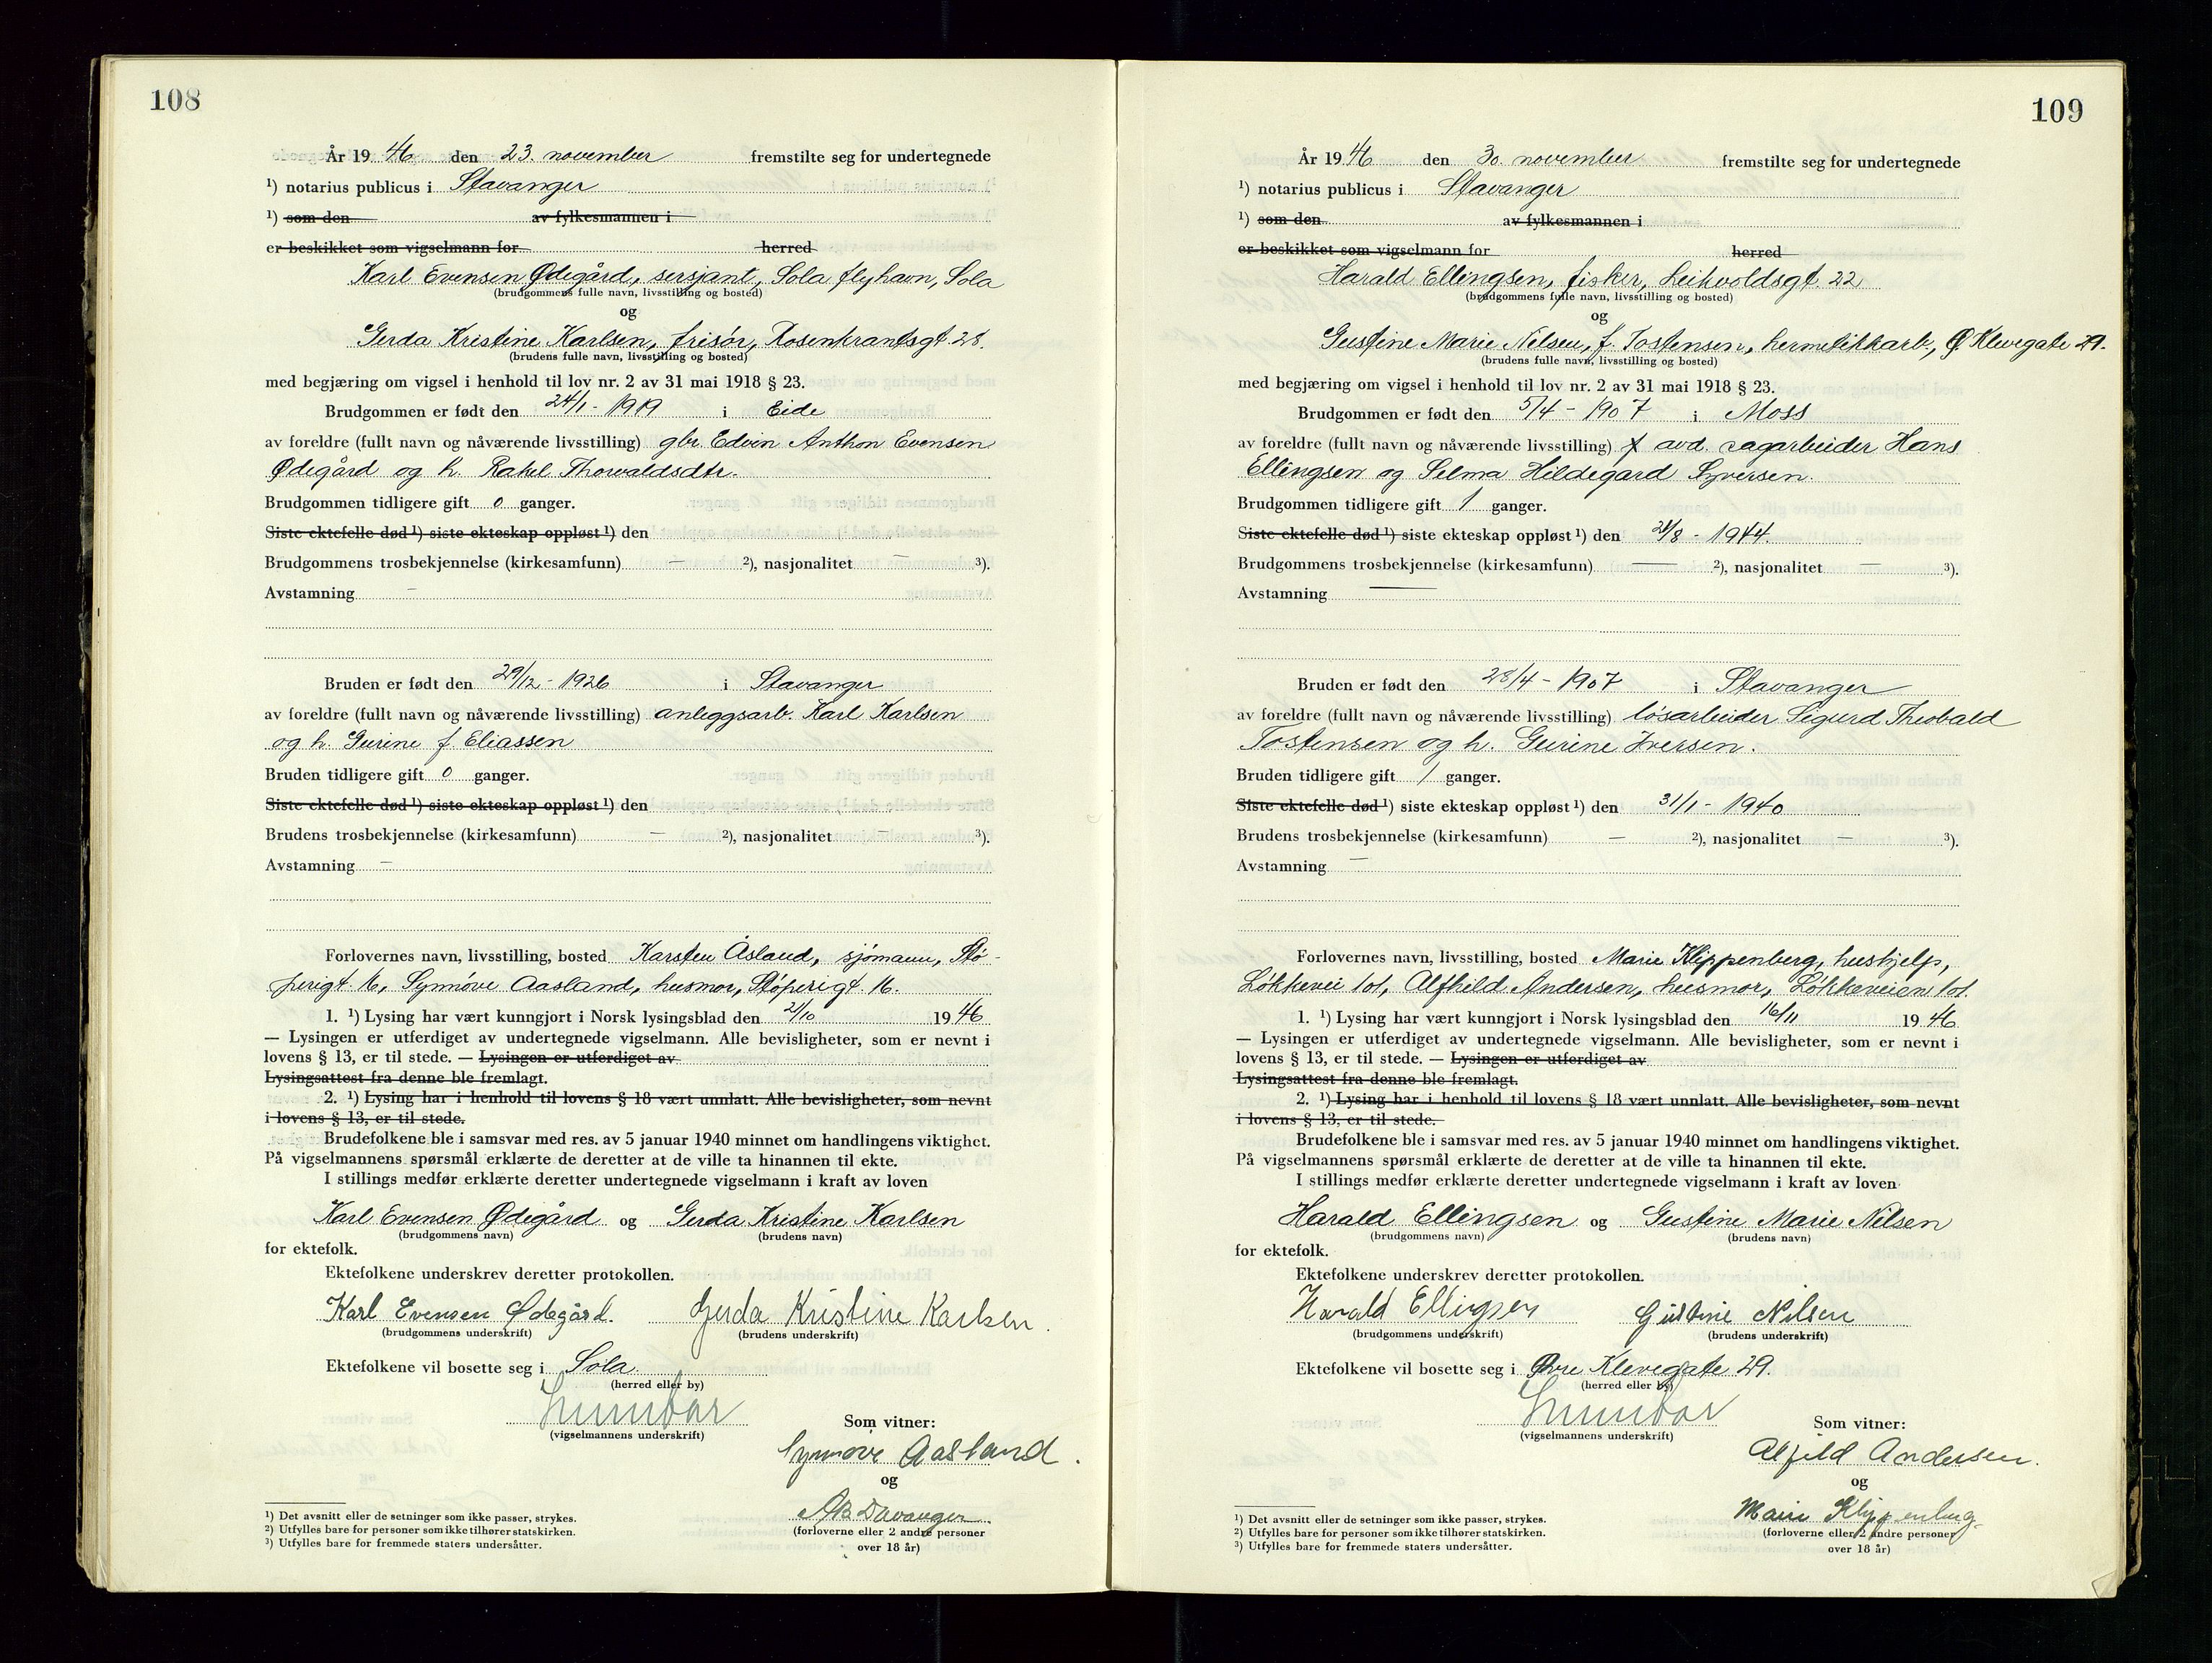 108
År 19 46 den 23. november fremstilte seg for undertegnede
¹) notarius publicus i Stavanger
¹) som den av fylkesmannen i
er beskikket som vigselmann for herred
Karl Evensen Ødegård, sersjant, Sola flyhavn, Sola
(brudgommens fulle navn, livsstilling og bosted)
og
Gerda Kristine Karlsen, frisør, Rosenkrantsgt. 28.
(brudens fulle navn, livsstilling og bosted)
med begjæring om vigsel i henhold til lov nr. 2 av 31 mai 1918 § 23.
Brudgommen er født den 24/1 - 1919 i Eide
av foreldre (fullt navn og nåværende livsstilling) gbr. Edvin Anthon Evensen
Ødegård og h. Rakel Thorvaldsdtr.
Brudgommen tidligere gift 0 ganger.
Siste ektefelle død ¹) siste ekteskap oppløst ¹) den
Brudgommens trosbekjennelse (kirkesamfunn) — ²), nasjonalitet — ³).
Avstamning —
Bruden er født den 29/12 - 1926 i Stavanger
av foreldre (fullt navn og nåværende livsstilling) anleggsarb. Karl Karlsen
og h. Gurine f. Eliassen
Bruden tidligere gift 0 ganger.
Siste ektefelle død ¹) siste ekteskap oppløst ¹) den
Brudens trosbekjennelse (kirkesamfunn) — ²), nasjonalitet — ³).
Avstamning —
Forlovernes navn, livsstilling, bosted Karsten Åsland, sjømann, Stø-
perigt. 16, Synnøve Aasland, husmor, Støperigt. 16.
1. ¹) Lysing har vært kunngjort i Norsk lysingsblad den 21/10 19 46
— Lysingen er utferdiget av undertegnede vigselmann. Alle bevisligheter, som er nevnt i
lovens § 13, er til stede. — Lysingen er utferdiget av
Lysingsattest fra denne ble fremlagt.
2. ¹) Lysing har i henhold til lovens § 18 vært unnlatt. Alle bevisligheter, som nevnt
i lovens § 13, er til stede.
Brudefolkene ble i samsvar med res. av 5 januar 1940 minnet om handlingens viktighet.
På vigselmannens spørsmål erklærte de deretter at de ville ta hinannen til ekte.
I stillings medfør erklærte deretter undertegnede vigselmann i kraft av loven
Karl Evensen Ødegård og Gerda Kristine Karlsen
(brudgommens navn) (brudens navn)
for ektefolk.
Ektefolkene underskrev deretter protokollen.
Karl Evensen Ødegård. Gerda Kristine Karlsen.
(brudgommens underskrift) (brudens underskrift)
Ektefolkene vil bosette seg i Sola.
(herred eller by)
(vigselmannens underskrift)
Som vitner:
Synnøve Aasland.
og
(forloverne eller 2 andre personer
over 18 år)
¹) Det avsnitt eller de setninger som ikke passer, strykes.
²) Utfylles bare for personer som ikke tilhører statskirken.
³) Utfylles bare for fremmede staters undersåtter.
109
År 19 46 den 30. november fremstilte seg for undertegnede
¹) notarius publicus i Stavanger
¹) som den av fylkesmannen i
er beskikket som vigselmann for herred
Harald Ellingsen, fisker, Leikvoldsgt. 22
(brudgommens fulle navn, livsstilling og bosted)
og
Gustine Marie Nilsen, f. Tostensen, hermetikkarb., Ø. Klevegate 29.
(brudens fulle navn, livsstilling og bosted)
med begjæring om vigsel i henhold til lov nr. 2 av 31 mai 1918 § 23.
Brudgommen er født den 5/4 - 1907 i Moss
av foreldre (fullt navn og nåværende livsstilling) f avd. sagarbeider Hans
Ellingsen og Selma Hildegard Syversen.
Brudgommen tidligere gift 1 ganger.
Siste ektefelle død ¹) siste ekteskap oppløst ¹) den 21/8 - 1944.
Brudgommens trosbekjennelse (kirkesamfunn) — ²), nasjonalitet — ³).
Avstamning —
Bruden er født den 28/4 - 1907 i Stavanger
av foreldre (fullt navn og nåværende livsstilling) løsarbeider Sigurd Theobald
Tostensen og h. Gurine Iversen.
Bruden tidligere gift 1 ganger.
Siste ektefelle død ¹) siste ekteskap oppløst ¹) den 31/1 - 1940
Brudens trosbekjennelse (kirkesamfunn) — ²), nasjonalitet — ³).
Avstamning —
Forlovernes navn, livsstilling, bosted Marie Klippenberg, hushjelp,
Løkkevei 101, Alfhild Andersen, husmor, Løkkeveien 101.
1. ¹) Lysing har vært kunngjort i Norsk lysingsblad den 16/11 19 46
— Lysingen er utferdiget av undertegnede vigselmann. Alle bevisligheter, som er nevnt i
lovens § 13, er til stede. — Lysingen er utferdiget av
Lysingsattest fra denne ble fremlagt.
2. ¹) Lysing har i henhold til lovens § 18 vært unnlatt. Alle bevisligheter, som nevnt
i lovens § 13, er til stede.
Brudefolkene ble i samsvar med res. av 5 januar 1940 minnet om handlingens viktighet.
På vigselmannens spørsmål erklærte de deretter at de ville ta hinannen til ekte.
I stillings medfør erklærte deretter undertegnede vigselmann i kraft av loven
Harald Ellingsen og Gustine Marie Nilsen
(brudgommens navn) (brudens navn)
for ektefolk.
Ektefolkene underskrev deretter protokollen.
Harald Ellingsen Gustine Nilsen
(brudgommens underskrift) (brudens underskrift)
Ektefolkene vil bosette seg i Øvre Klevegate 29.
(herred eller by)
(vigselmannens underskrift)
Som vitner:
Alfild Andersen.
og
Marie Klippenberg
(forloverne eller 2 andre personer
over 18 år)
¹) Det avsnitt eller de setninger som ikke passer, strykes.
²) Utfylles bare for personer som ikke tilhører statskirken.
³) Utfylles bare for fremmede staters undersåtter.